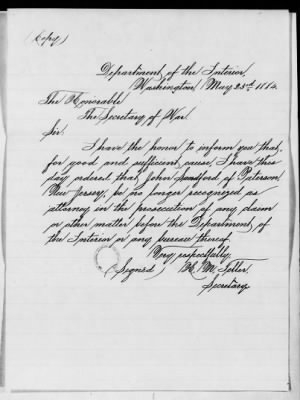 (Copy)
Department of the Interior,
Washington, May 23rd 1884.
The Honorable
The Secretary of War.
Sir.
I have the honor to inform you that,
for good and sufficient cause, I have this
day ordered that John Sandford, of Paterson
New Jersey, be no longer recognized as
attorney in the prosecution of any claim
or other matter before the Department of
the Interior or any bureau thereof.
Very respectfully,
(Signed) H. M. Teller.
Secretary.